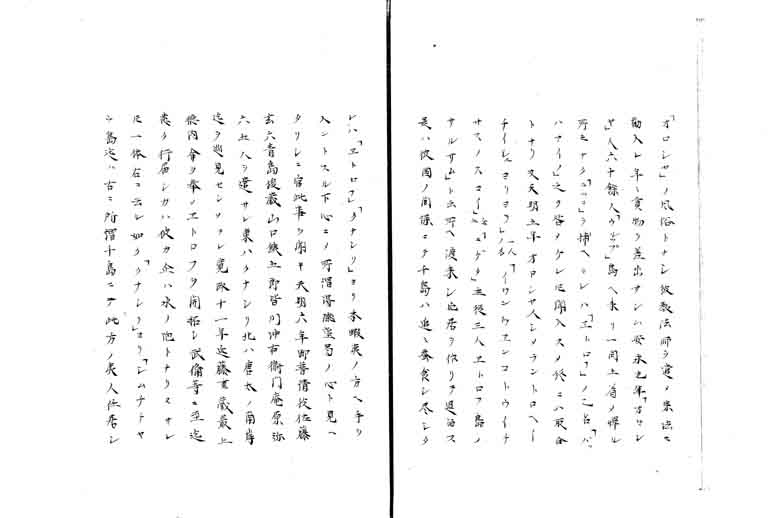 「オロシヤ」ノ風俗トナシ彼教法師ヲ遣シ宗法ニ
勧入レ年々貨物ヲ差出サシム安永元年「オロシ
ヤ」人六十餘人「ウルツプ」島ヘ来リ一同上着ノ獵
所ヲ「ラツコ」ヲ捕ヘシハ「エトロフ」ノ乙名「ハツ
ハアイノ」之ヲ咎メケレ聞入スメ終ニハ取合
トナリ又天明五年オロシヤ人シメラントロヘー
チイヒヱヨリヨフ イワンケエンコトウイナ
サスノスコイ ニケタ 主従三人エトロフ島ノ
サルサムト云所ヘ渡来シ此居ヲ作リテ退治ス
是ハ彼国ノ間諜ニテ千島ハ追々蚕食シ尽シタ
レハ「エトロフ」「クナシリ」ヨリ本蝦夷ノ方ヘ手ヲ
入ントスル下心ニノ所謂得隴望蜀ノ心ト見ヘ
タリシニ官此事ヲ聞キ天明六年御普請役佐藤
玄六青島俊蔵山口鉄五郎皆川沖右衛門庵原弥
六五人ヲ遣サレ東ハクナシリ北ハ唐太ノ南岸
迄ヲ巡見センメラレ寛政十一年近藤重蔵最上
徳内命ヲ奉ノエトロフヲ開拓シ武備等ニ至迄
悉ク行届シガハ彼カ念ハ水ノ泡トナリヌサレ
圧一体右ニ云シ如ク「クナシリ」ヨリ「シムナトヤ
ニ島迄ハ古ニ所謂千島ニテ此方ノ夷人住居シ